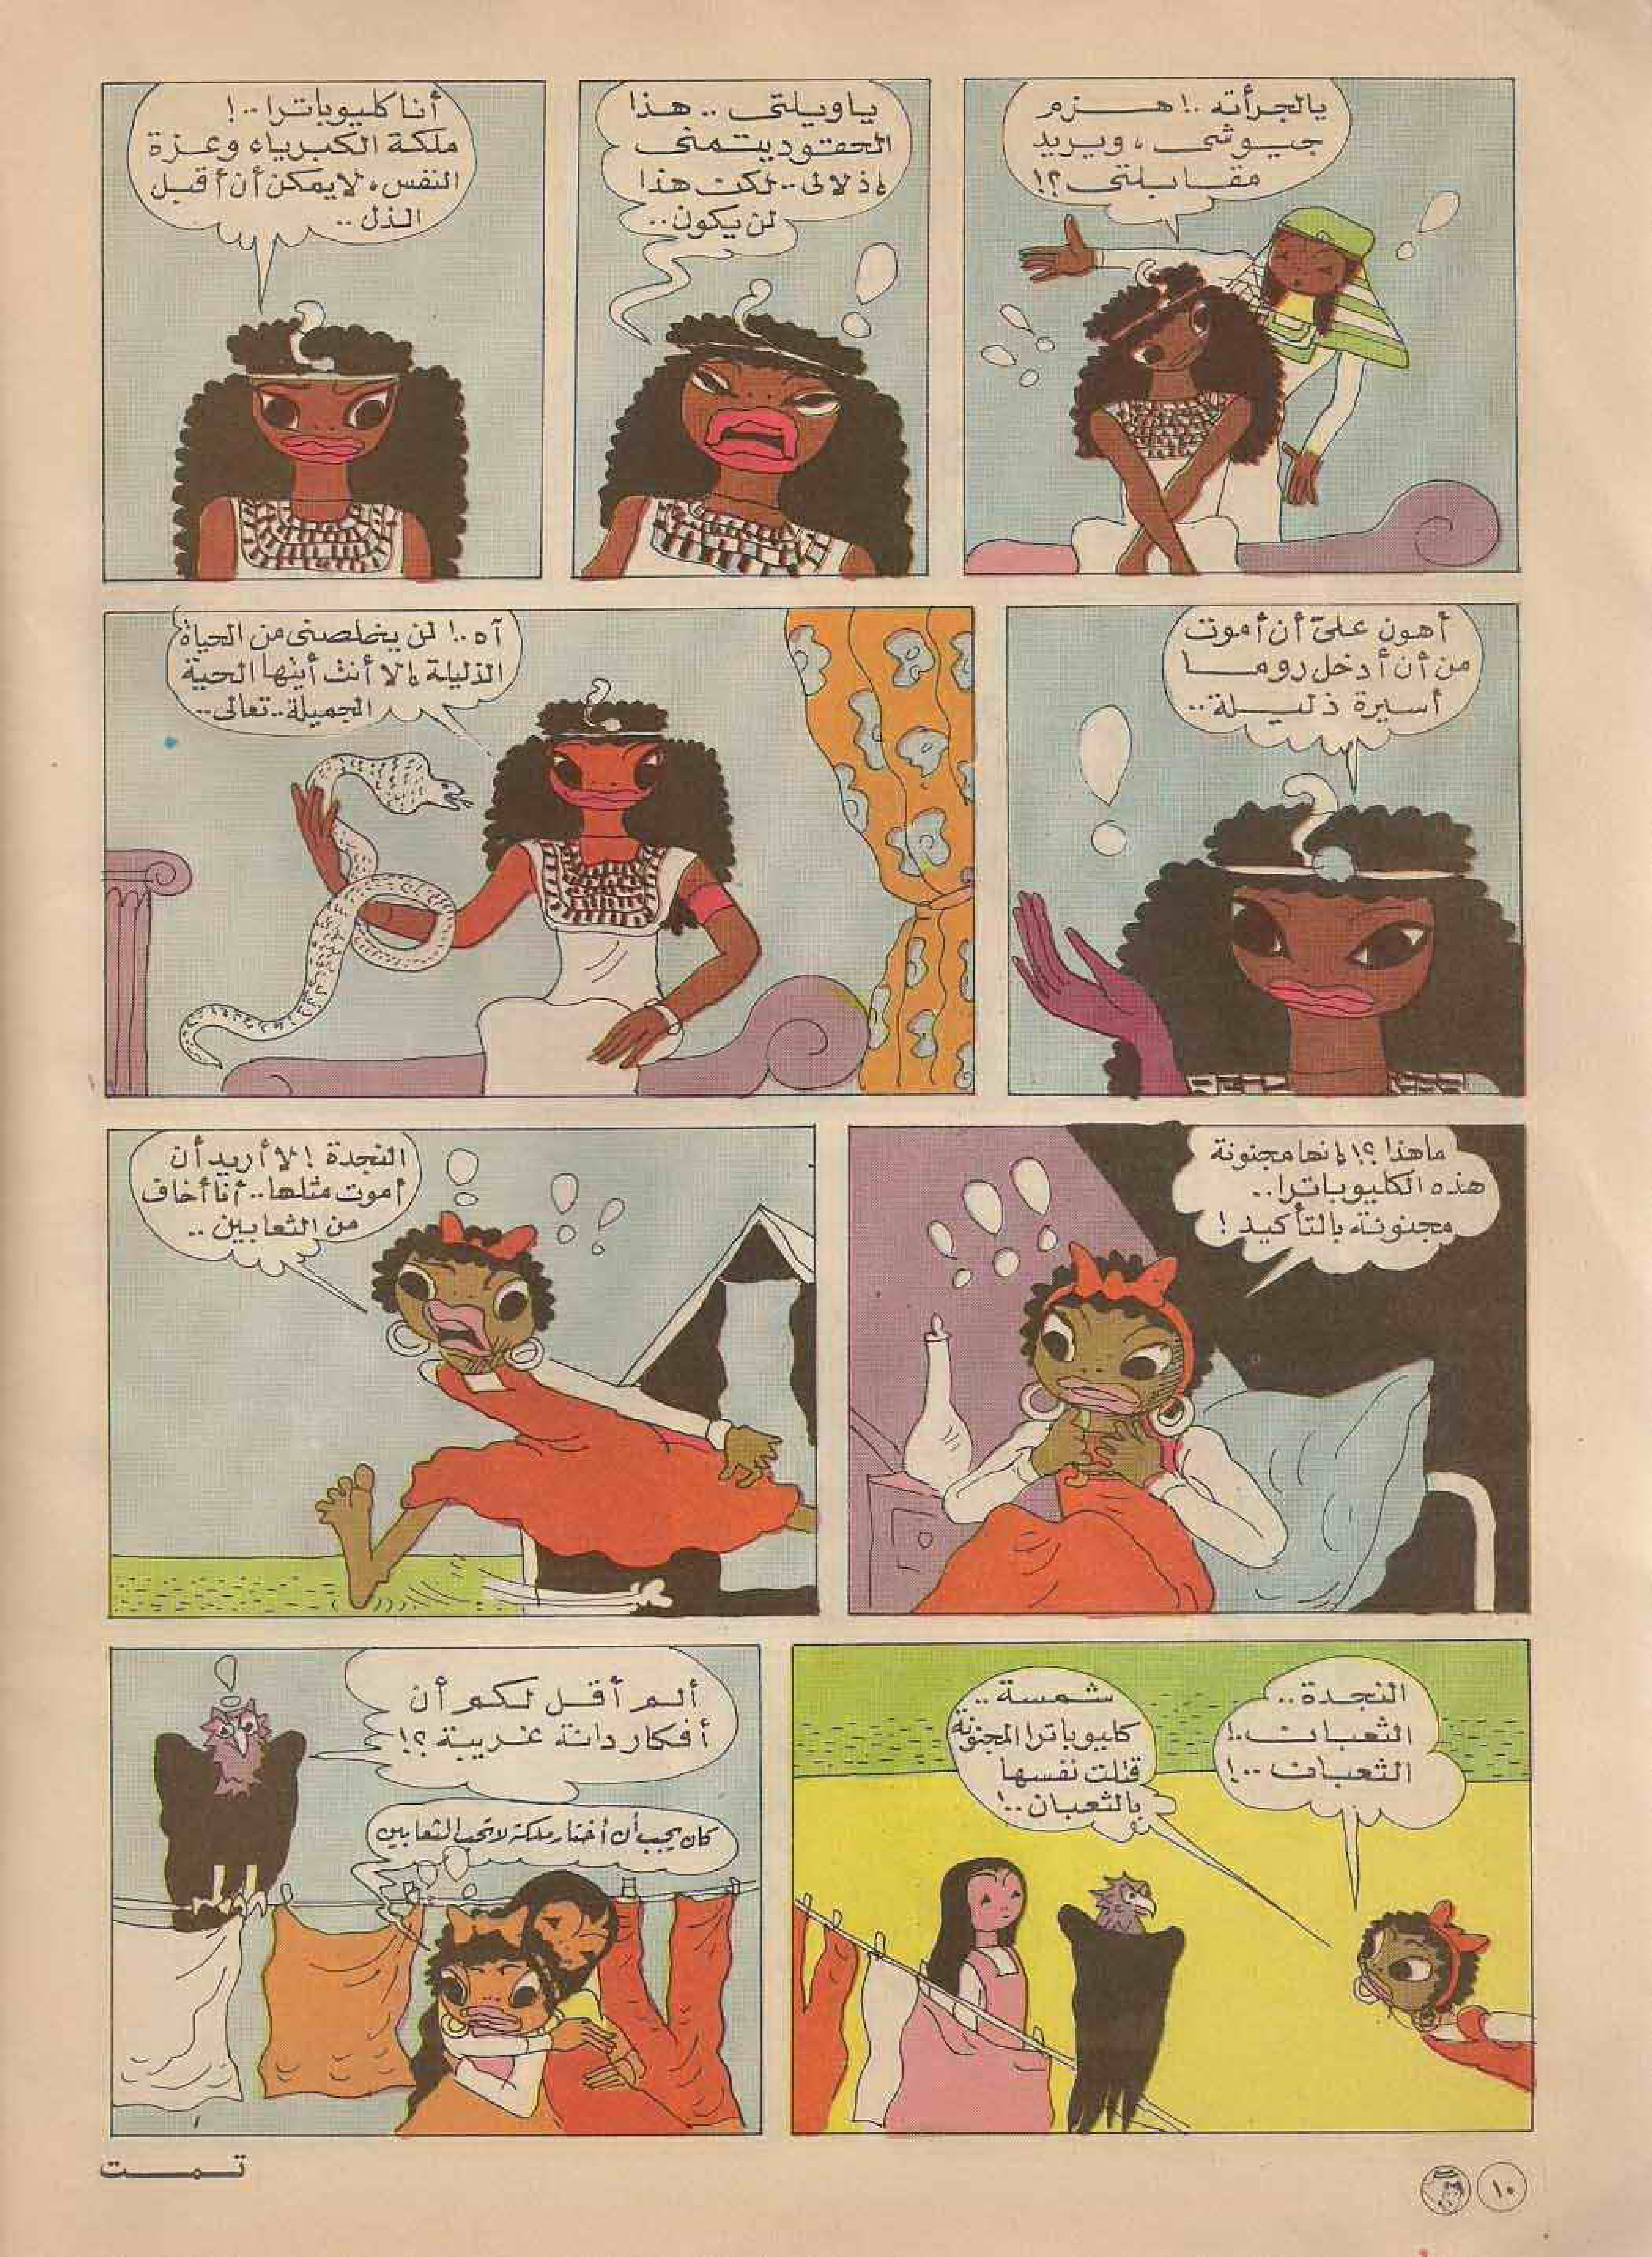 يالجرأته ..! هزم
جيوشى ، ويريد
مقابلتى ؟!
ياويلتى .. هذا
الحقود يتمنى
إذلالى .. لكن هذا
لن يكون ..
أنا كليوباترا ..!
ملكة الكبرياء وعزة
النفس ، لا يمكن أن أقبل
الذل ..
أهون علىّ أن أموت
من أن أدخل روما
أسيرة ذليلة ..
آه ..! لن يخلصنى من الحياة
الذليلة إلا أنت أيتها الحية
الجميلة .. تعالى ..
ماهذا ؟! إنها مجنونة
هذه الكليوباترا ..
مجنونة بالتأكيد !
النجدة ! لا أريد أن
أموت مثلها .. أنا أخاف
من الثعابين ..
النجدة ..
الثعبان ..!
الثعبان ..!
شمسة ..
كليوباترا المجنونة
قتلت نفسها
بالثعبان ..!
ألم أقل لكم أن
أفكار دانة غريبة ؟!
كان يجب أن أختار ملكة لا تحب الثعابين
تمت
١٠